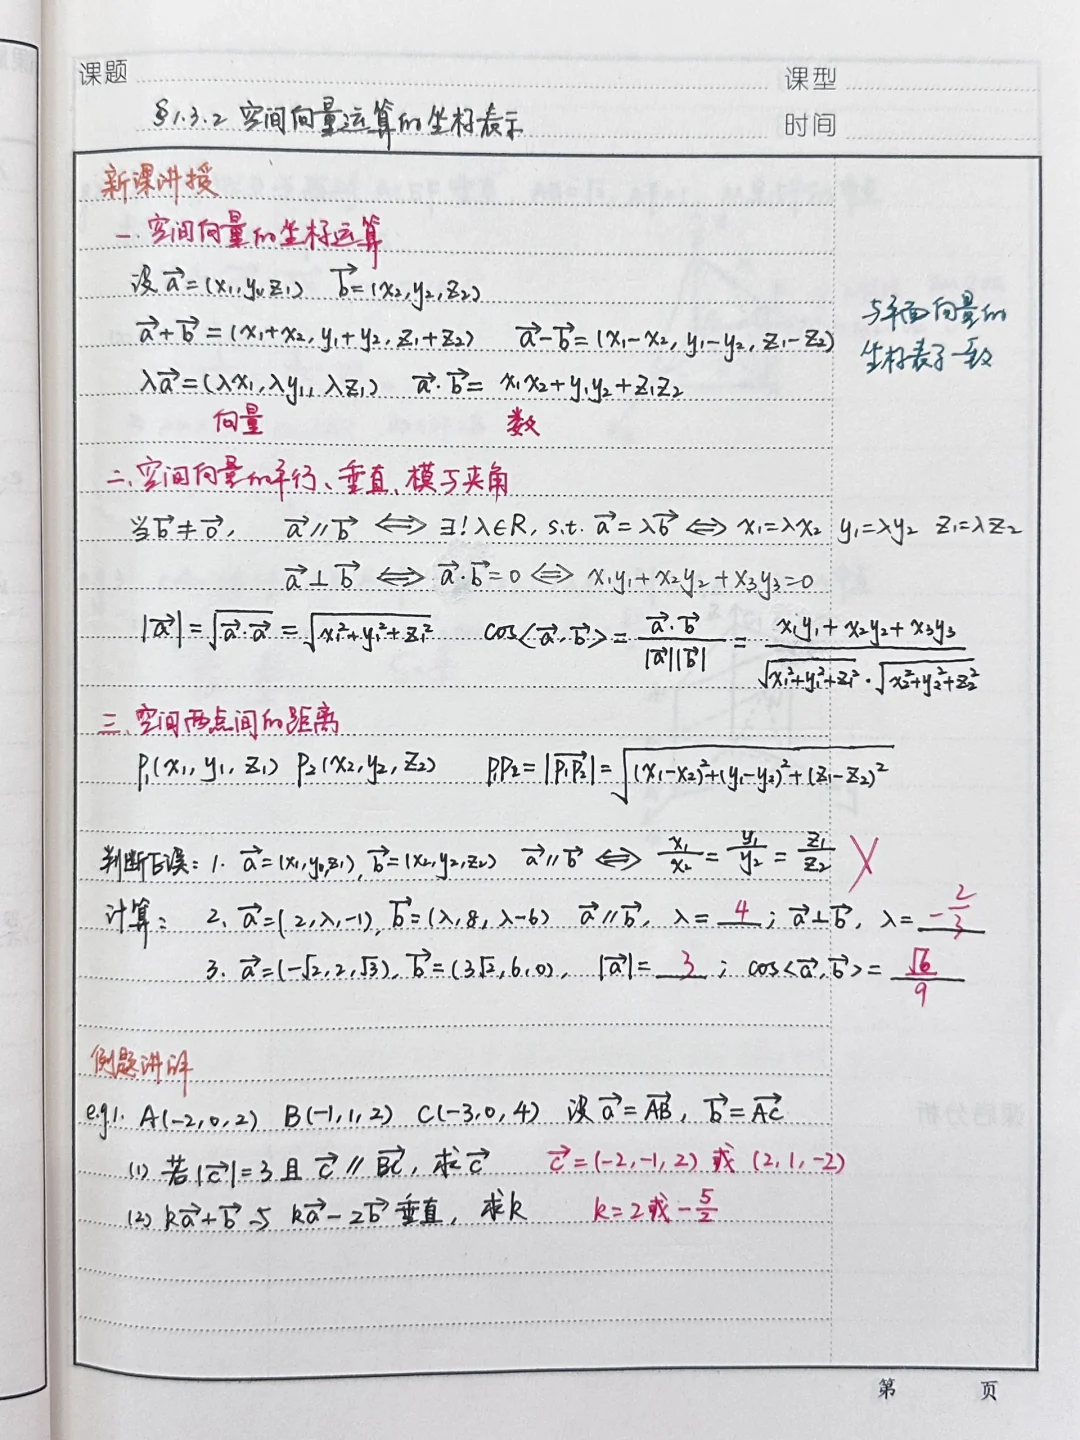 课题
课型
§1.3.2 空间向量运算的坐标表示
时间
新课讲授
一.空间向量的坐标运算
设a⃗=(x₁,y₁,z₁) b⃗=(x₂,y₂,z₂)
a⃗+b⃗=(x₁+x₂,y₁+y₂,z₁+z₂) a⃗-b⃗=(x₁-x₂,y₁-y₂,z₁-z₂)
与平面向量的
坐标表示一致
λa⃗=(λx₁,λy₁,λz₁) a⃗·b⃗=x₁x₂+y₁y₂+z₁z₂
向量 数
二.空间向量的平行、垂直、模与夹角
当b⃗≠0⃗, a⃗∥b⃗ ⟺ ∃!λ∈R, s.t. a⃗=λb⃗ ⟺ x₁=λx₂ y₁=λy₂ z₁=λz₂
a⃗⊥b⃗ ⟺ a⃗·b⃗=0 ⟺ x₁y₁+x₂y₂+x₃y₃=0
|a⃗|=√(a⃗·a⃗)=√(x₁²+y₁²+z₁²) cos<a⃗,b⃗>=(a⃗·b⃗)/(|a⃗||b⃗|)=(x₁y₁+x₂y₂+x₃y₃)/(√(x₁²+y₁²+z₁²)·√(x₂²+y₂²+z₂²))
三.空间两点间的距离
P₁(x₁,y₁,z₁) P₂(x₂,y₂,z₂) P₁P₂=|P₁P₂⃗|=√((x₁-x₂)²+(y₁-y₂)²+(z₁-z₂)²)
判断正误:1. a⃗=(x₁,y₁,z₁),b⃗=(x₂,y₂,z₂) a⃗∥b⃗ ⟺ x₁/x₂=y₁/y₂=z₁/z₂ ╳
计算: 2. a⃗=(2,λ,-1),b⃗=(λ,8,λ-6) a⃗∥b⃗, λ=4; a⃗⊥b⃗, λ=-2/3
3. a⃗=(-√2,2,√3),b⃗=(3√2,6,0), |a⃗|=3; cos<a⃗,b⃗>=√6/9
例题讲评
e.g1. A(-2,0,2) B(-1,1,2) C(-3,0,4) 设a⃗=AB⃗, b⃗=AC⃗
(1) 若|c⃗|=3且c⃗∥BC⃗, 求c⃗ c⃗=(-2,-1,2)或(2,1,-2)
(2) ka⃗+b⃗与ka⃗-2b⃗垂直, 求k k=2或-5/2
第 页